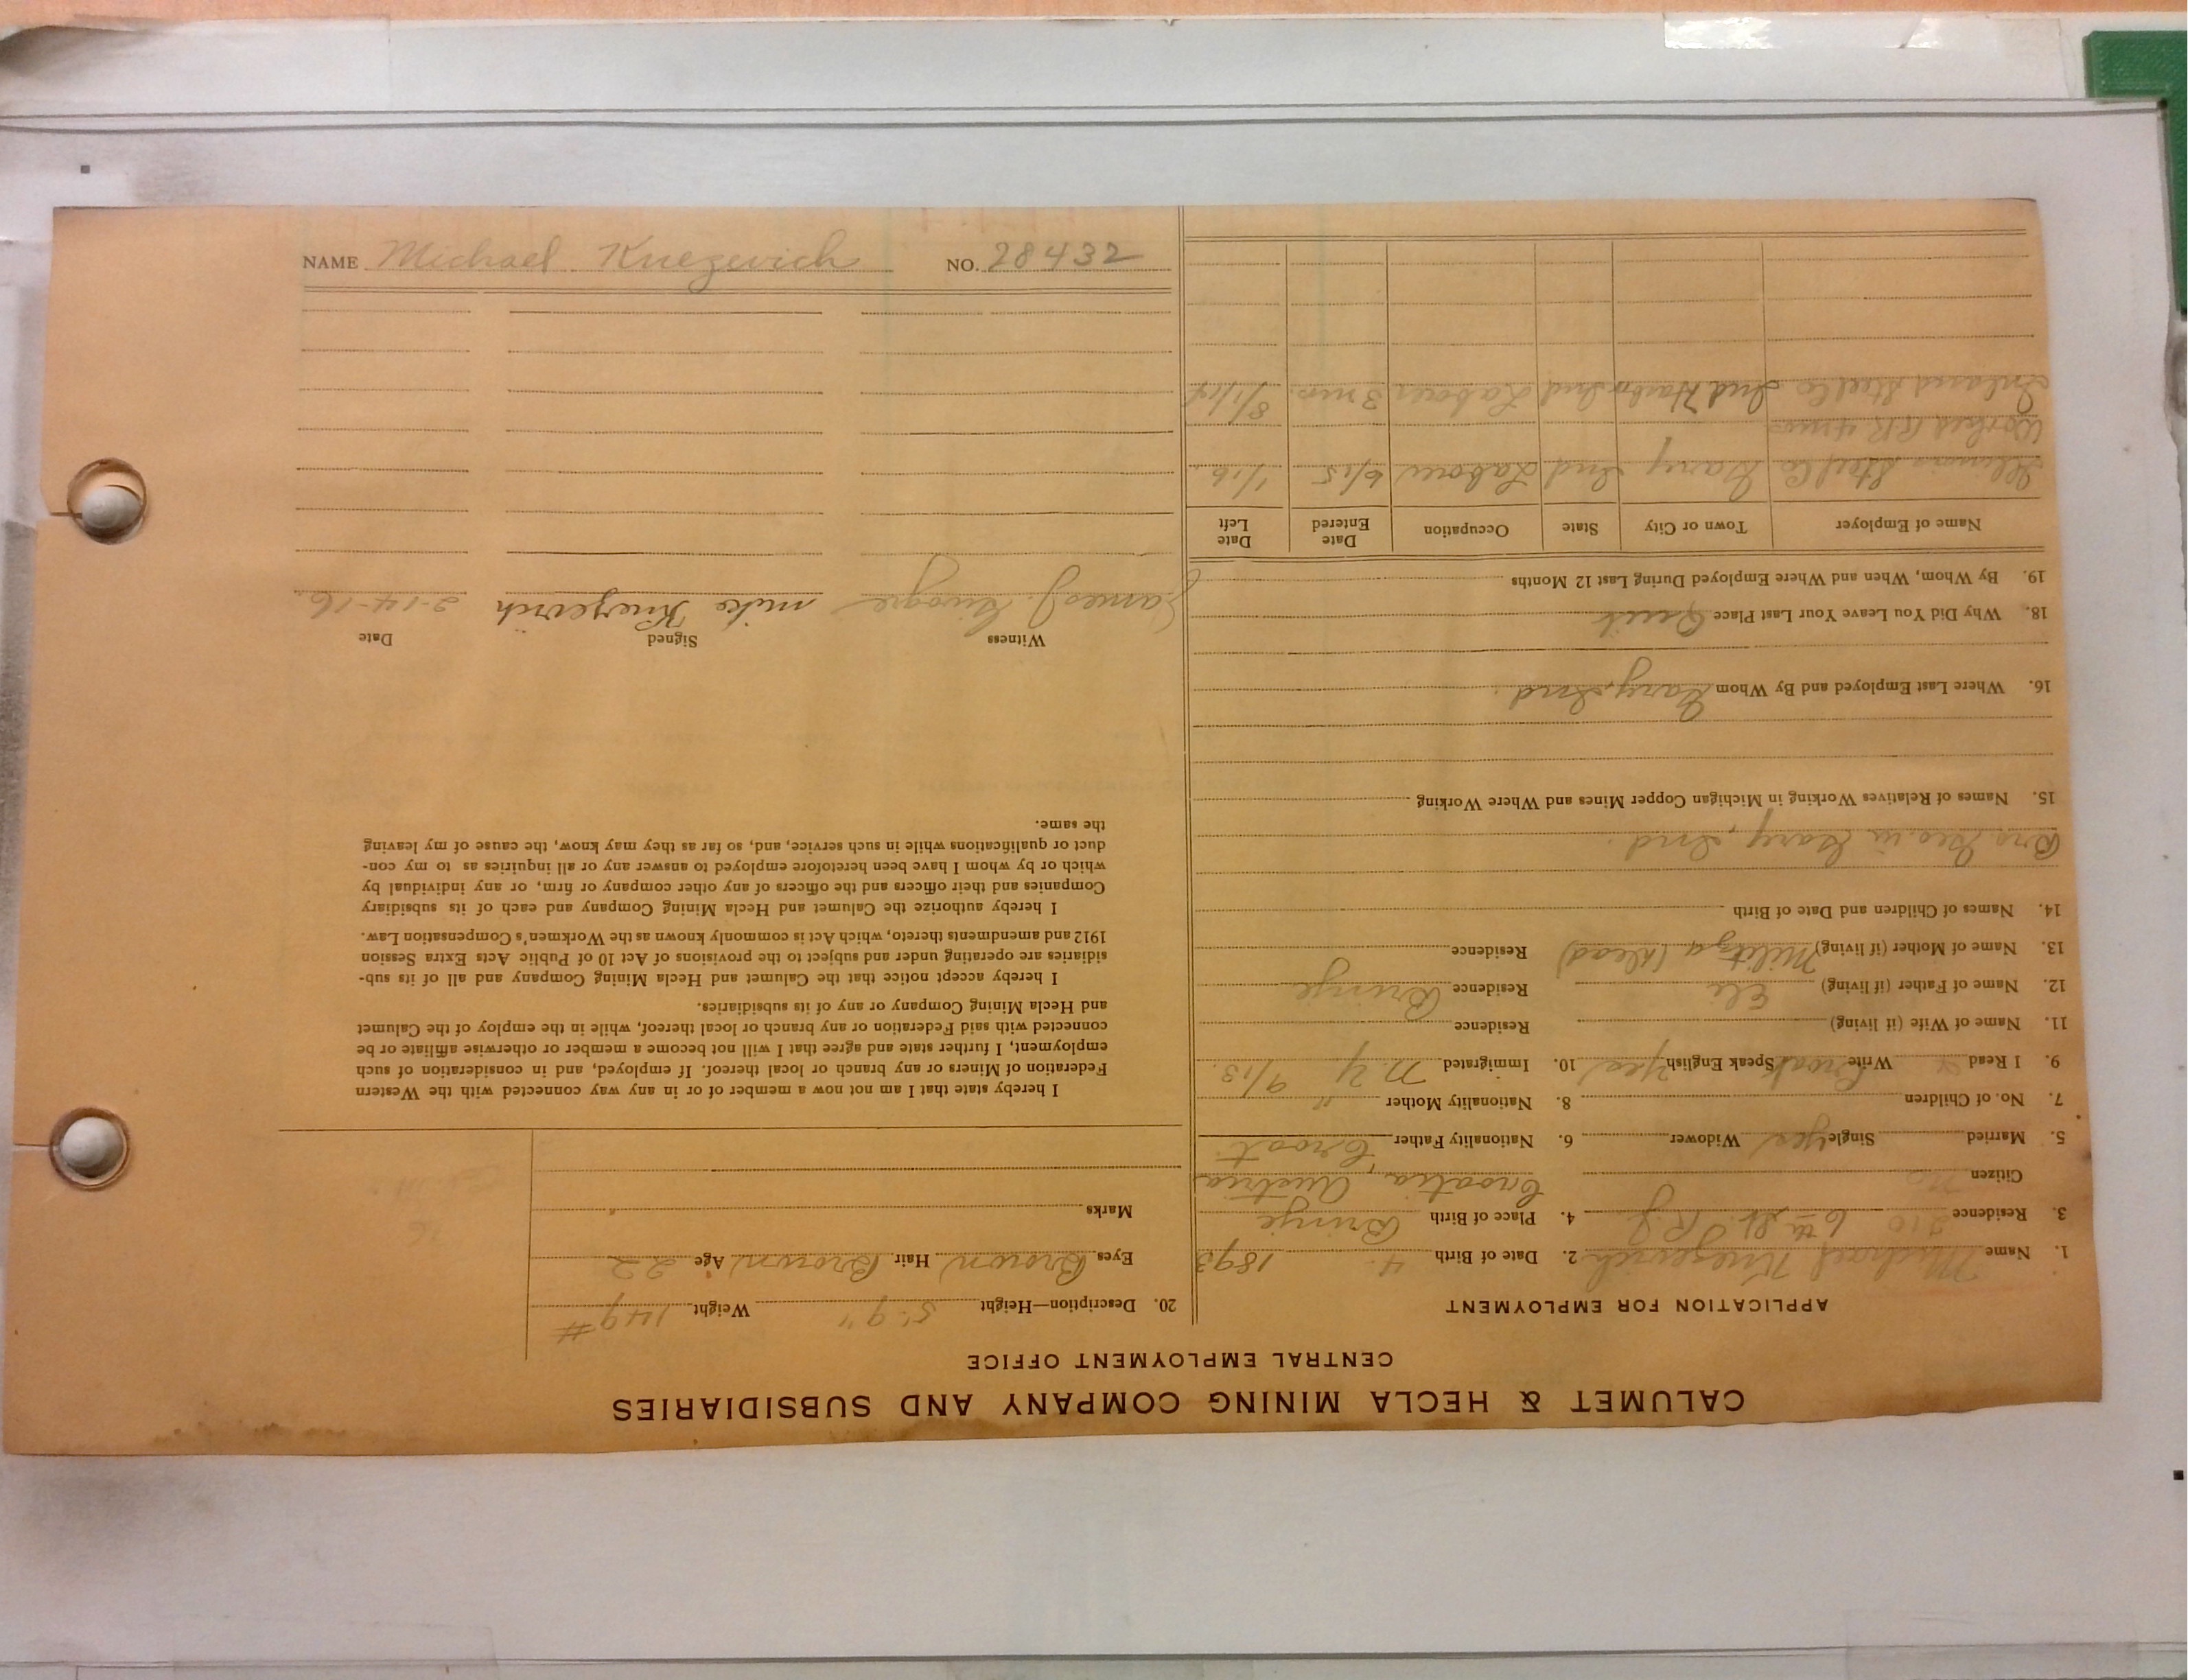 CALUMET & HECLA MINING COMPANY AND SUBSIDIARIES
CENTRAL EMPLOYMENT OFFICE
APPLICATION FOR EMPLOYMENT
1. Name Michael Knezevich 2. Date of Birth 4 1893
3. Residence 210 6th St. R.J. 4. Place of Birth Brinje
Citizen no Croatia, Austria
5. Married Single yes Widower 6. Nationality Father Croat
7. No. of Children 8. Nationality Mother "
9. I Read Write Croat Speak English yes 10. Immigrated N.Y 9/13.
11. Name of Wife (if living) Residence
12. Name of Father (if living) Eli Residence Brinje
13. Name of Mother (if living) Militza (dead) Residence
14. Names of Children and Date of Birth
Bro. Geo. in Gary, Ind.
15. Names of Relatives Working in Michigan Copper Mines and Where Working
16. Where Last Employed and By Whom Gary, Ind.
18. Why Did You Leave Your Last Place Quit
19. By Whom, When and Where Employed During Last 12 Months
Name of Employer Town or City State Occupation Date Entered Date Left
Illinois Steel Co Gary Ind Laborer 6/15 1/16
Worked RR 4 mos
Inland Steel Co Ind Harbor Ind Laborer 3 mos. 8/1/14
20. Description—Height 5' 9" Weight 149 #
Eyes Brown Hair Brown Age 22
Marks
I hereby state that I am not now a member of or in any way connected with the Western
Federation of Miners or any branch or local thereof. If employed, and in consideration of such
employment, I further state and agree that I will not become a member or otherwise affiliate or be
connected with said Federation or any branch or local thereof, while in the employ of the Calumet
and Hecla Mining Company or any of its subsidiaries.
I hereby accept notice that the Calumet and Hecla Mining Company and all of its sub-
sidiaries are operating under and subject to the provisions of Act 10 of Public Acts Extra Session
1912 and amendments thereto, which Act is commonly known as the Workmen's Compensation Law.
I hereby authorize the Calumet and Hecla Mining Company and each of its subsidiary
Companies and their officers and the officers of any other company or firm, or any individual by
which or by whom I have been heretofore employed to answer any or all inquiries as to my con-
duct or qualifications while in such service, and, so far as they may know, the cause of my leaving
the same.
Witness Signed Date
James J. mike Knezevich 2-14-16.
NAME Michael Knezevich NO. 28432